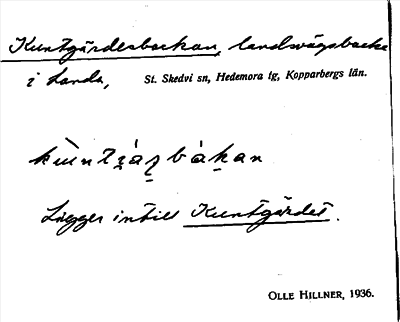 Kuntgärdesbackan, landsvägsbacke
i Landa, St. Skedvi sn, Hedemora tg, Kopparbergs län.
Ligger intill Kuntgärdet.
OLLE HILLNER, 1936.